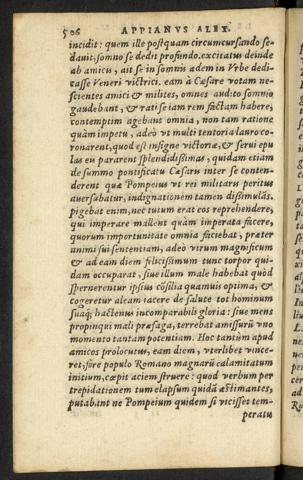 506 APPIANVS ALEX.
incidit: quem ille postquam circumcursando se-
dauit, somno se dedit profundo. excitatus deinde
ab amicis, ait se in somnis ædem in Vrbe dedi-
casse Veneri victrici. eam à Cæsare votam ne-
scientes amici & milites, omnes audito somnio
gaudebant, & rati se iam rem factam habere,
contemptim agebant omnia, non tam ratione
quàm impetu, adeò vt multi tentoria lauro co-
ronarent, quod est insigne victoriæ, & serui epu
las eu pararent splendidissimas, quidam etiam
de summo pontificatu Cæsaris inter se conten-
derent quæ Pompeius vt rei militaris peritus
auersabatur, indignationem tamen dissimulãs.
pigebat enim, nec tutum erat eos reprehendere,
qui imperare mallent quàm imperata facere,
quorum importunitate omnia faciebat, præter
animi sui sententiam, adeò virum magnificum
& ad eam diem felicissimum tunc torpor qui-
dam occuparat, siue illum malè habebat quòd
spernerentur ipsius cõsilia quamuis optima, &
cogeretur aleam iacere de salute tot hominum
suaq; hactenus incomparabili gloria: siue mens
propinqui mali præsaga, terrebat amissurũ vno
momento tantam potentiam. Hoc tantùm apud
amicos prolocutus, eam diem, vterlibet vince-
ret, fore populo Romano magnarũ calamitatum
initium, cœpit aciem struere: quod verbum per
trepidationem tum elapsum quidã æstimantes,
putabant ne Pompeium quidem si vicisset tem-
peratu